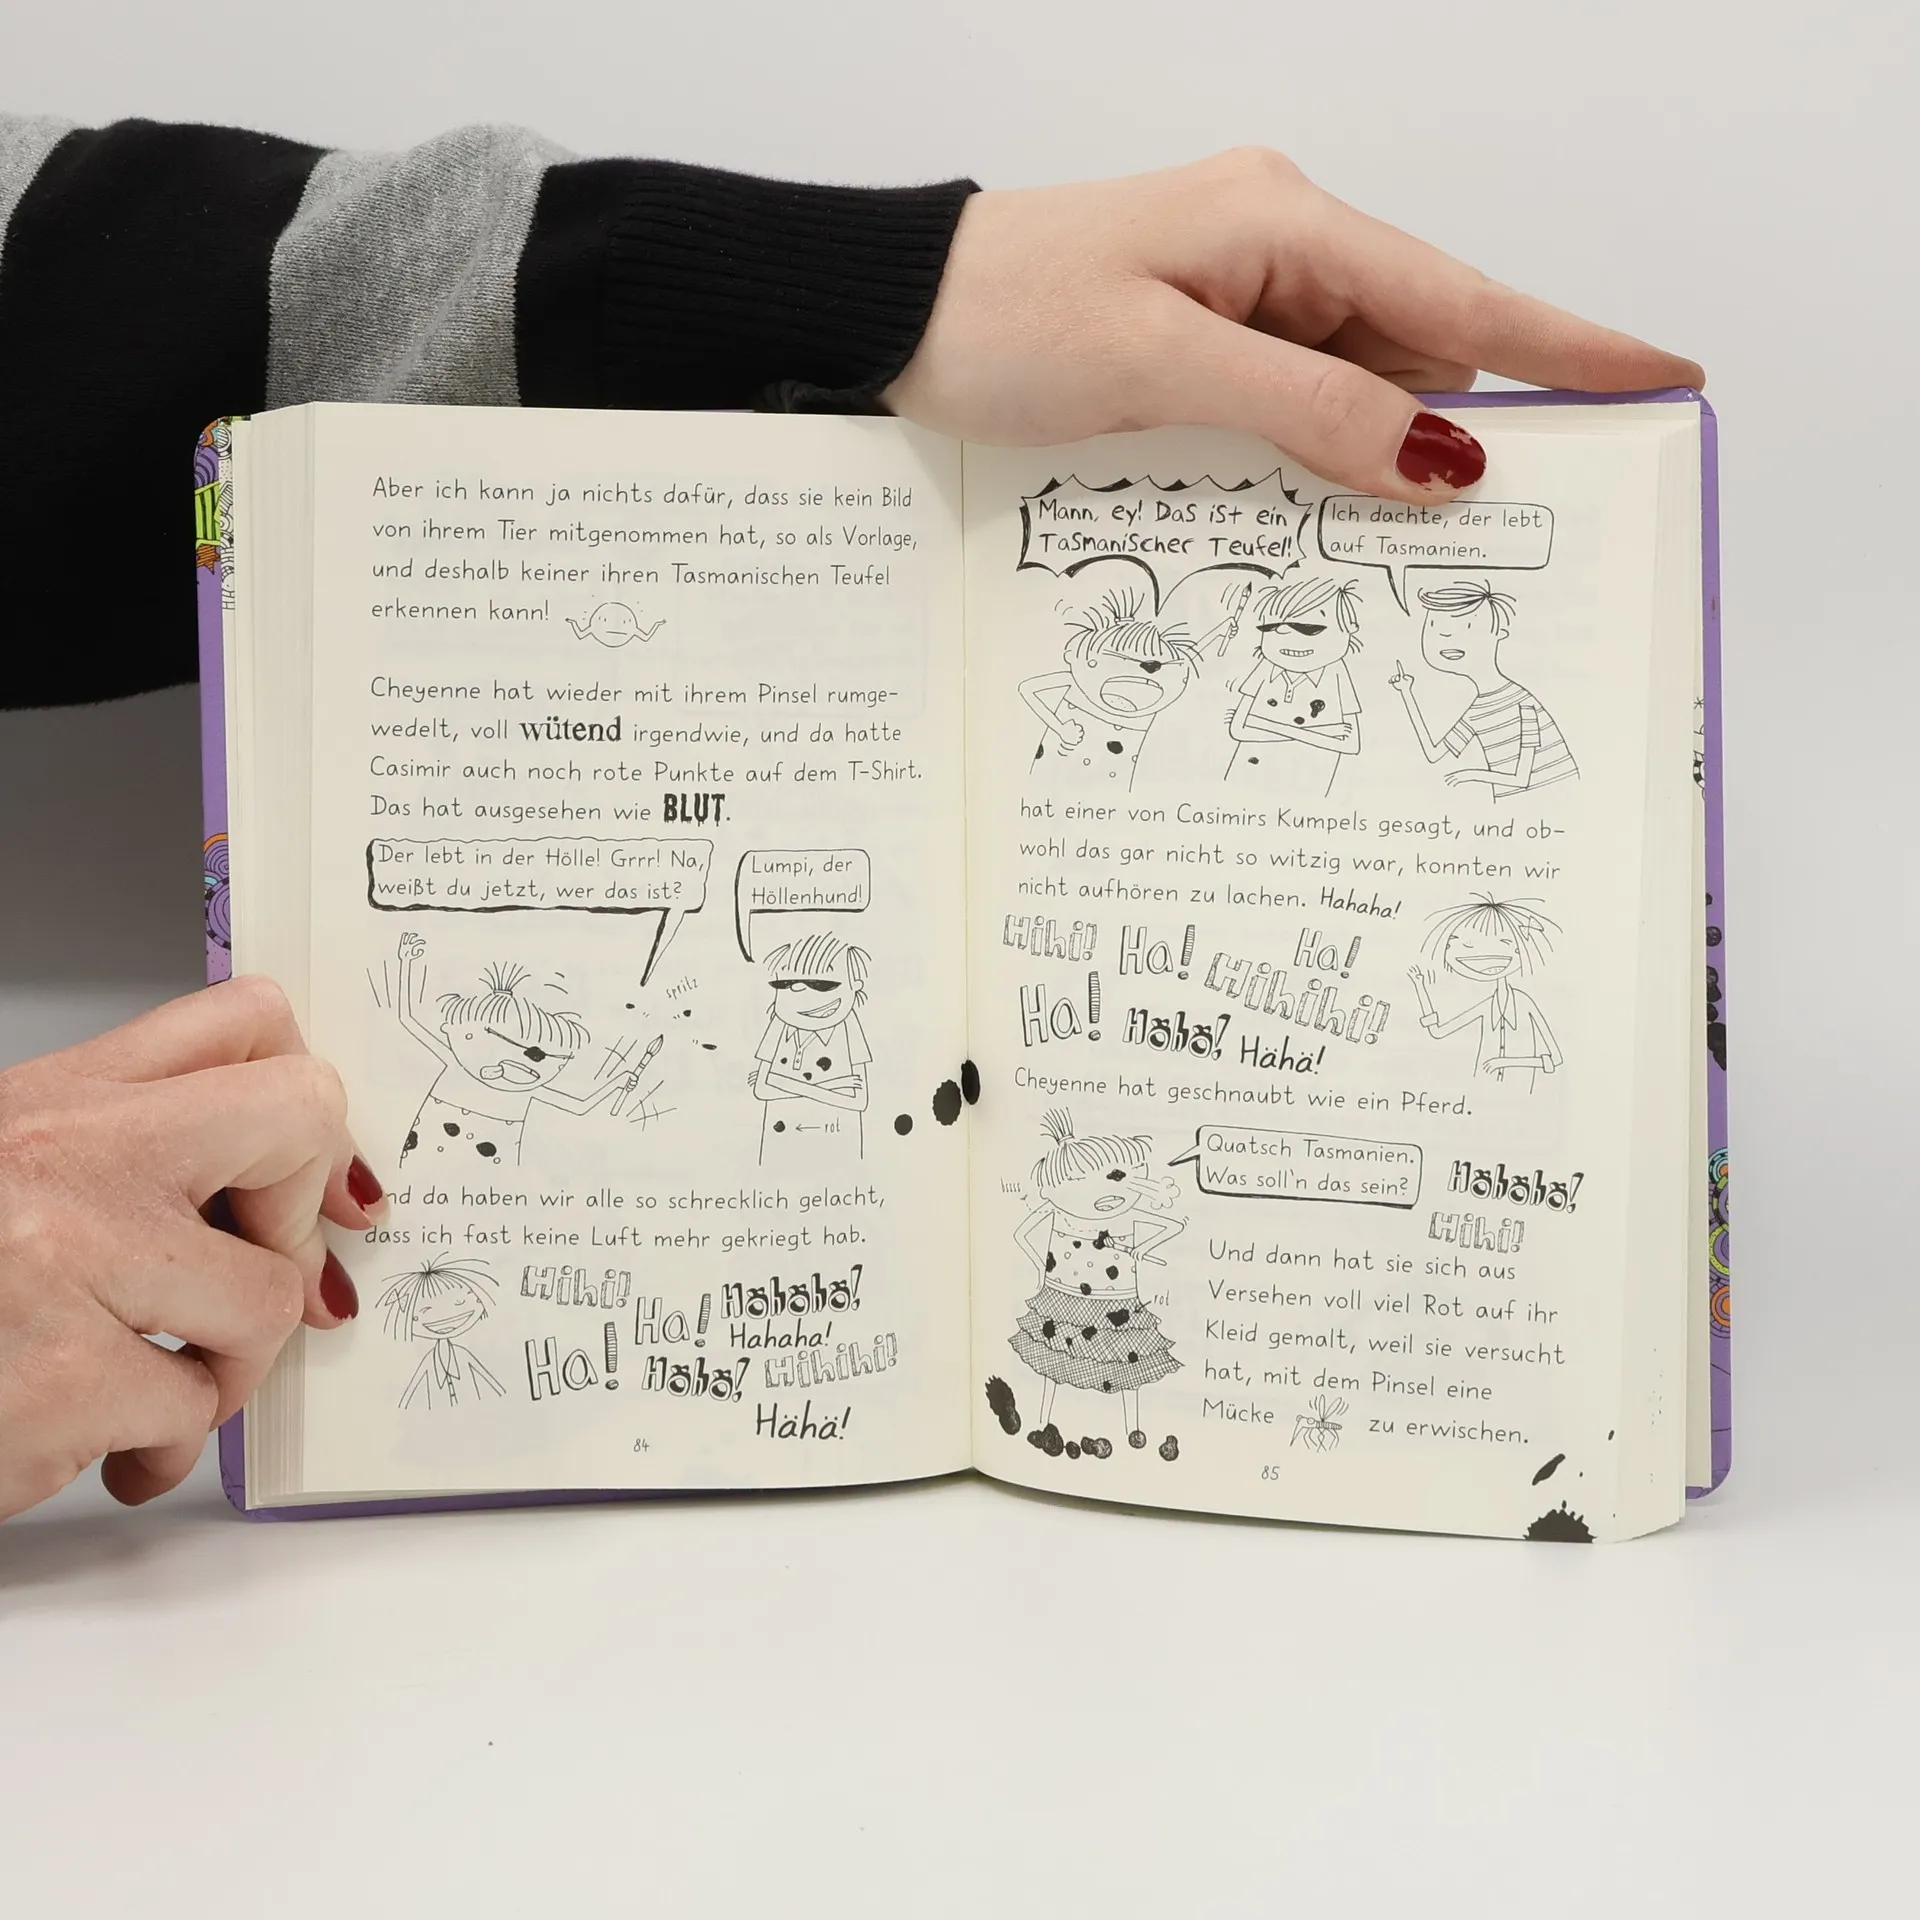 Aber ich kann ja nichts dafür, dass sie kein Bild
von ihrem Tier mitgenommen hat, so als Vorlage,
und deshalb keiner ihren Tasmanischen Teufel
erkennen kann!
Cheyenne hat wieder mit ihrem Pinsel rumge-
wedelt, voll wütend irgendwie, und da hatte
Casimir auch noch rote Punkte auf dem T-Shirt.
Das hat ausgesehen wie BLUT.
Der lebt in der Hölle! Grrr! Na,
weißt du jetzt, wer das ist?
Lumpi, der
Höllenhund!
spritz
rot
nd da haben wir alle so schrecklich gelacht,
dass ich fast keine Luft mehr gekriegt hab.
Hihi!
Ha!
Hähähä!
Hahaha!
Ha!
Hähä!
Hihihi!
Hähä!
84
Mann, ey! Das ist ein
Tasmanischer Teufel!
Ich dachte, der lebt
auf Tasmanien.
hat einer von Casimirs Kumpels gesagt, und ob-
wohl das gar nicht so witzig war, konnten wir
nicht aufhören zu lachen. Hahaha!
Hihi!
Ha!
Ha!
Hihihihi!
Ha!
Hähä!
Hähä!
Cheyenne hat geschnaubt wie ein Pferd.
Quatsch Tasmanien.
Was soll'n das sein?
Hähähä!
Hihi!
rot
Und dann hat sie sich aus
Versehen voll viel Rot auf ihr
Kleid gemalt, weil sie versucht
hat, mit dem Pinsel eine
Mücke zu erwischen.
85